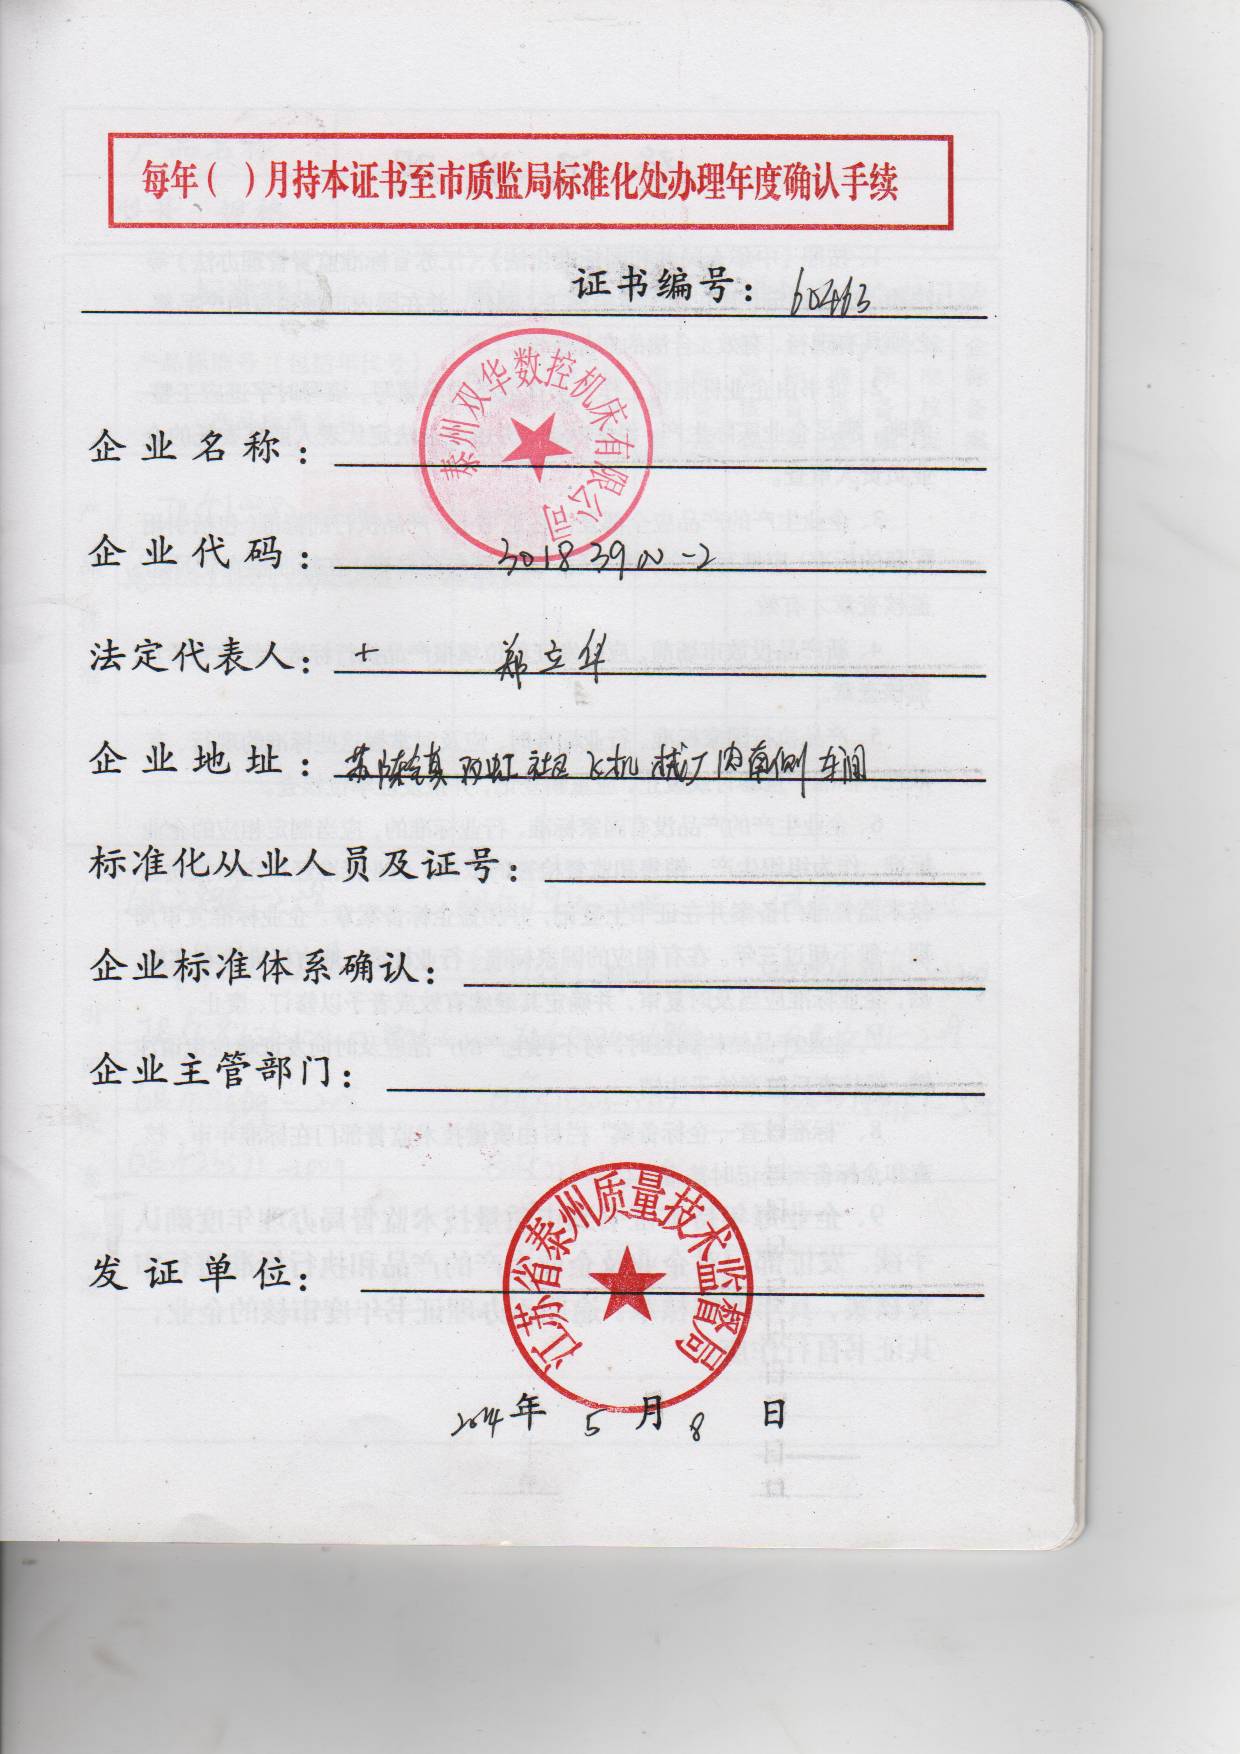 每年（ ）月持本证书至市质监局标准化处办理年度确认手续
证书编号：
泰州双华数控机床有限公司
企业名称：
企业代码：
法定代表人： 郑立华
企业地址： 苏陈镇双虹社区飞机械厂内南侧车间
标准化从业人员及证号：
企业标准体系确认：
企业主管部门：
江苏省泰州质量技术监督局
发证单位：
2014年 5 月 8 日